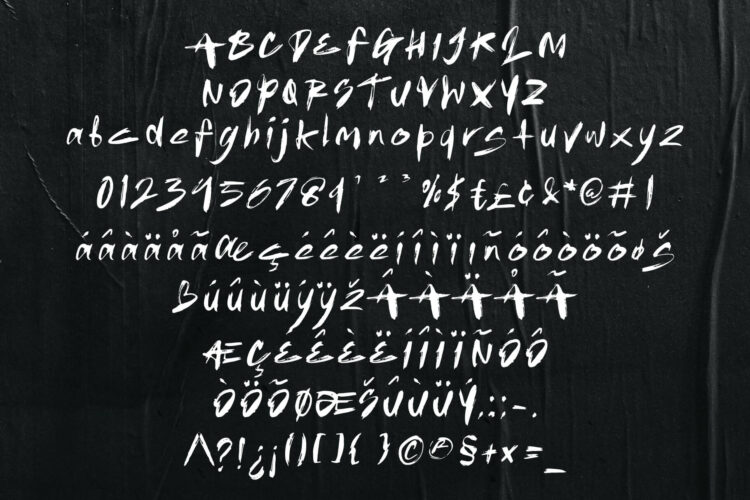 ABCDEFGHIJKLM
NOPQRSTUVWXYZ
abcdefghijklmnopqrstuvwxyz
0123456789¹²³%$€£¢&*@#!
áâàäåãæçéêèëíîìïıñóôòöõøš
ßúûùüýÿžÂÀÄÅÃ
ÆÇÉÊÈËÍÎÌÏÑÓÔ
ÒÖÕØŒŠÚÙÜÝ,:;-.
/\?!¿¡()[]{}©®§+×=_